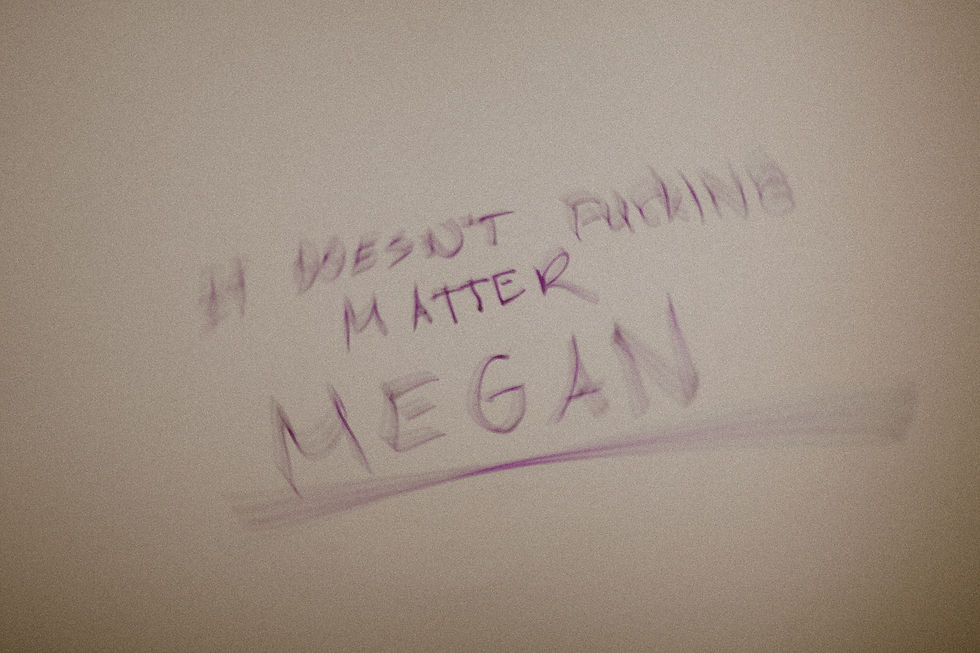 IT DOESN'T FUCKING
MATTER
MEGAN